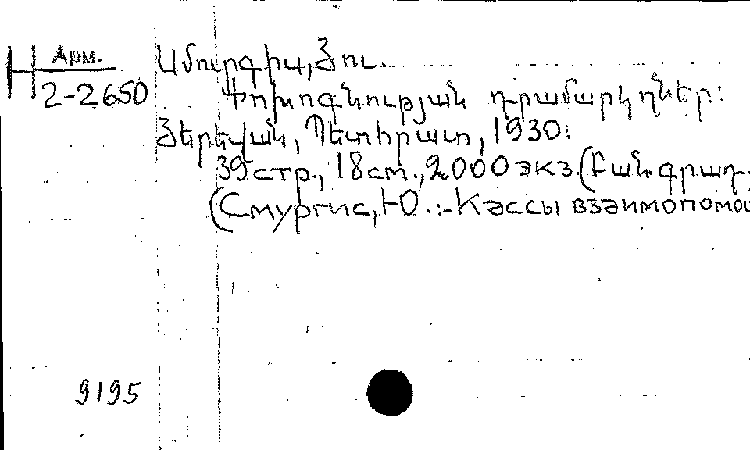 Н Арм.
2-2650
Սմուրգիս, Յու.
Փոխօգնության դրամարկղներ։
Յերեվան, Պետհրատ, 1930։
39 стр., 18 см., 2000 экз. (Բան. գրադ.
(Смургис, Ю. :-Кассы взаимопомощ
9195